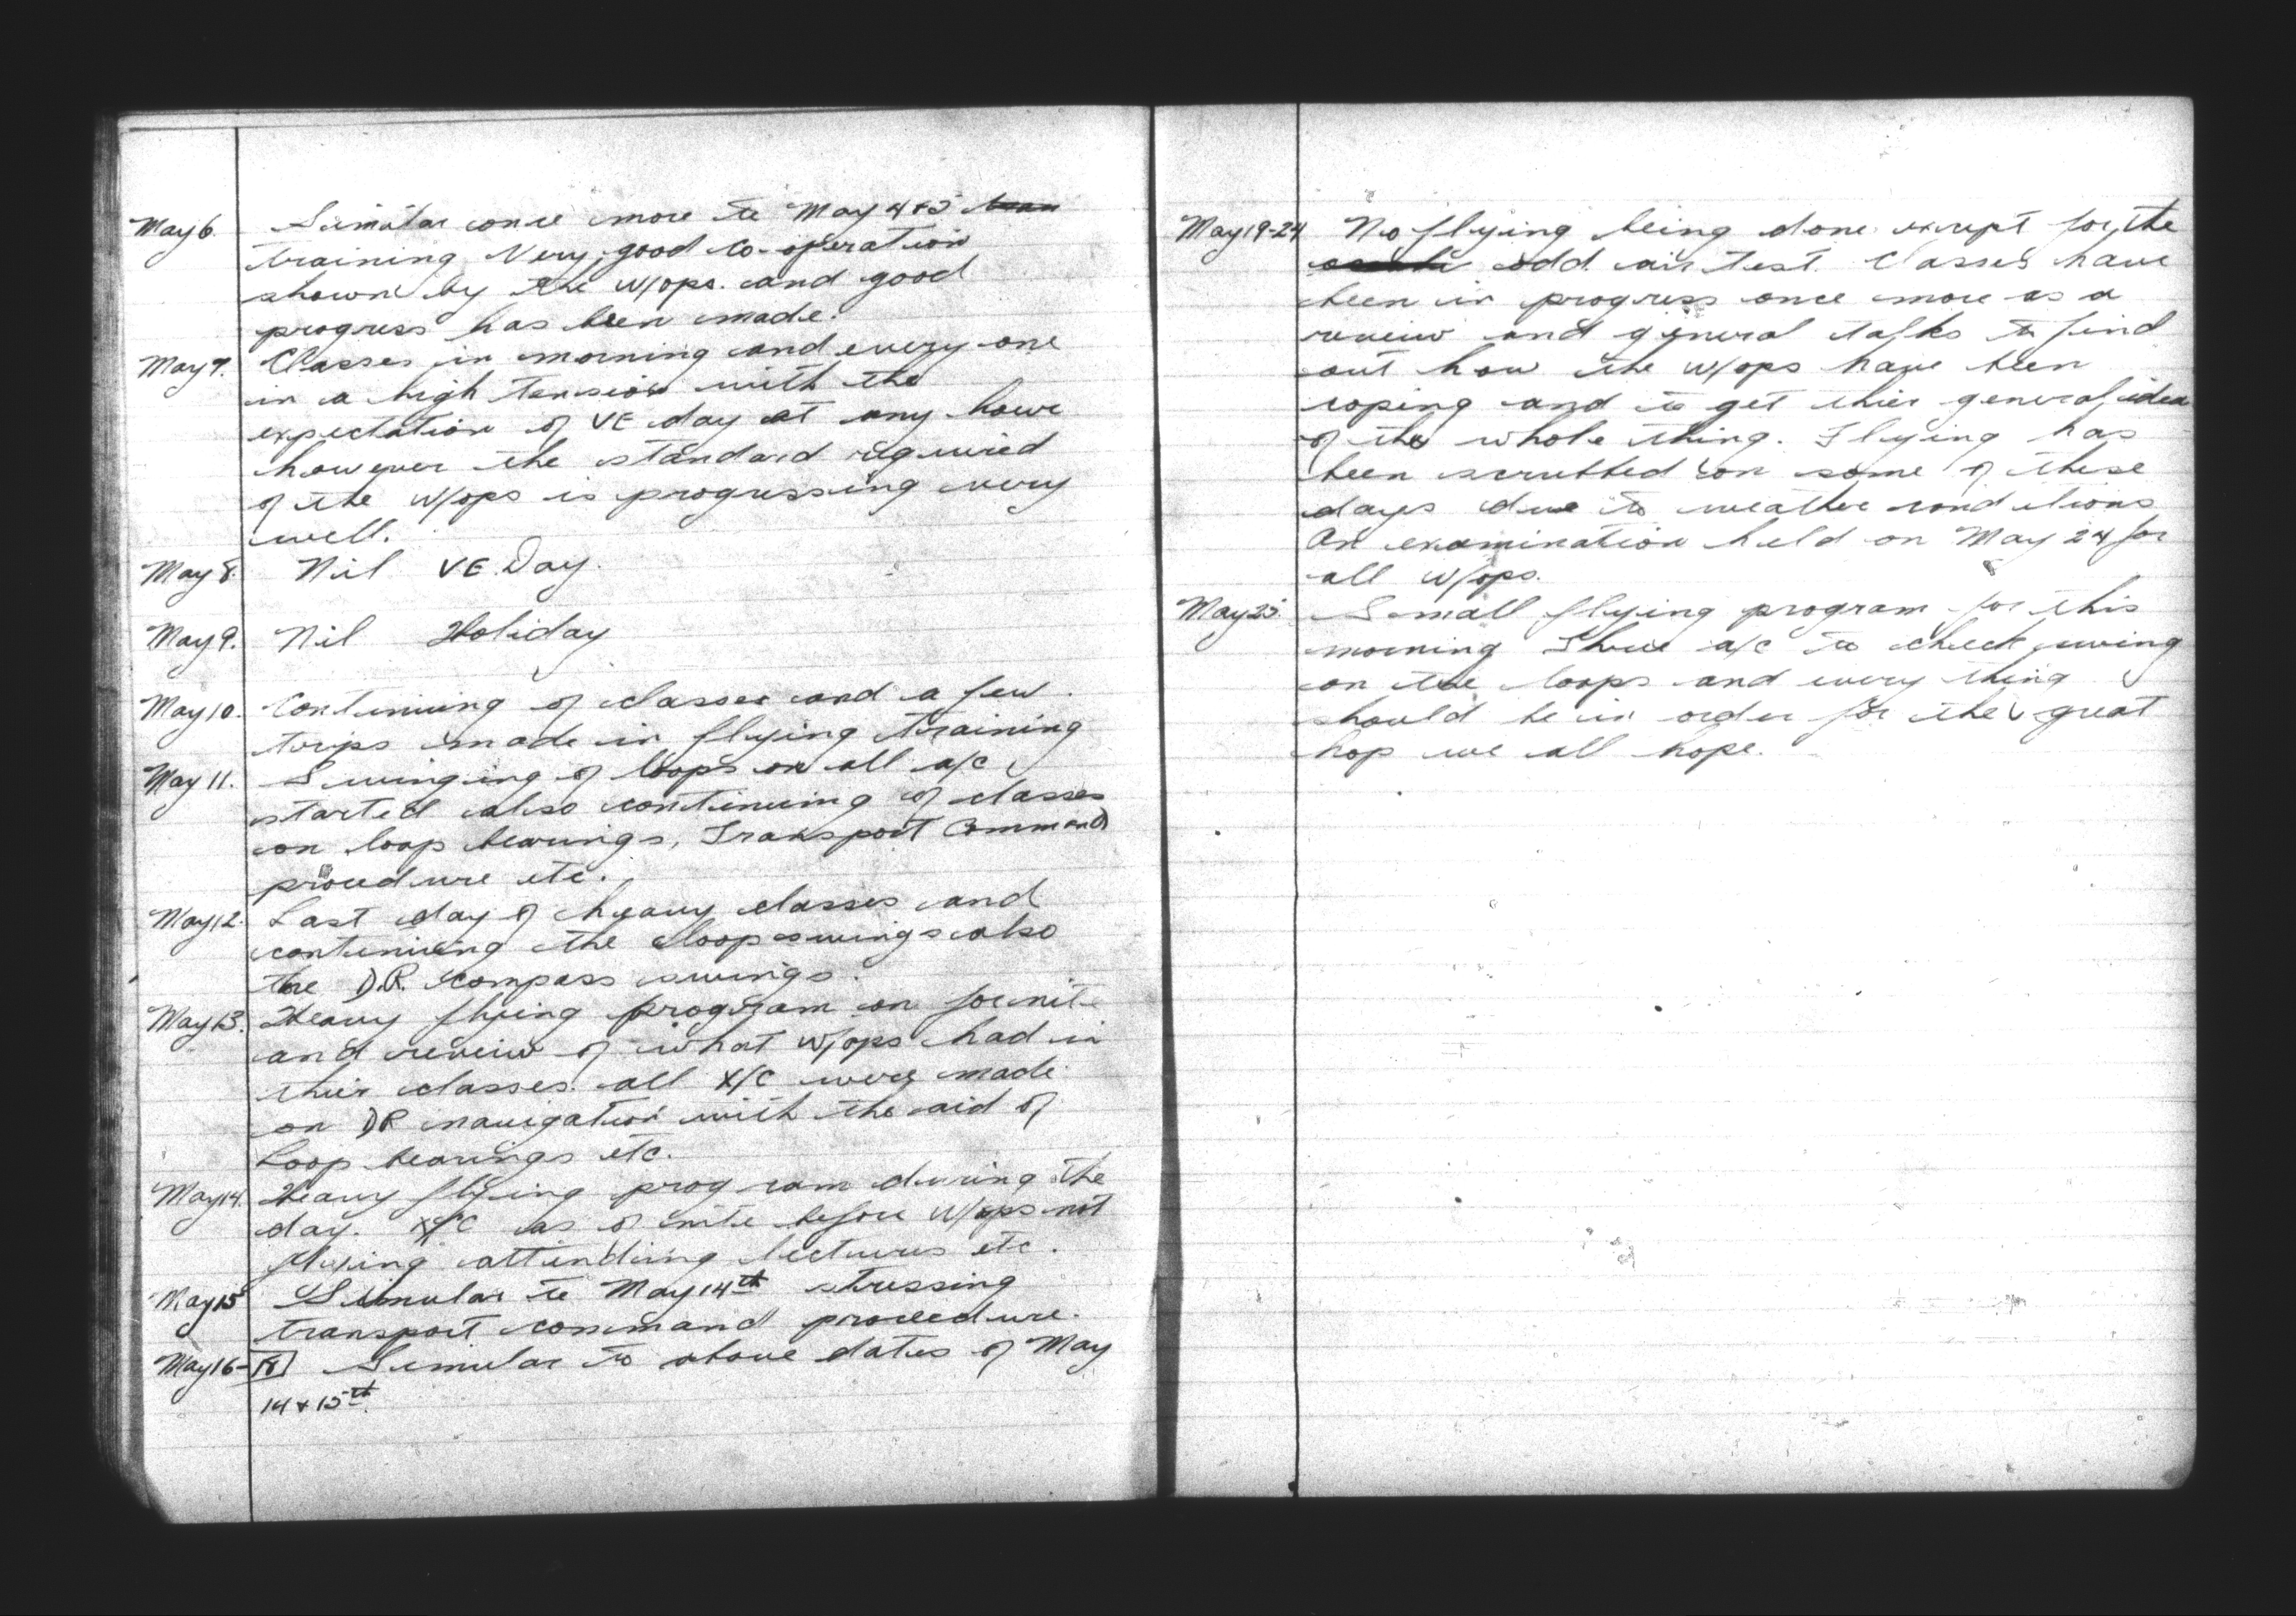 May 6. Similar once more to May 4 & 5
training. Very good co-operation
shown by the W/ops. and good
progress has been made.
May 7. Classes in morning and every one
in a high tension with the
expectation of VE day at any hour
however the standard required
of the W/ops is progressing very
well.
May 8. Nil VE. Day.
May 9. Nil Holiday
May 10. Continuing of classes and a few
trips made in flying training
May 11. Swinging of loops on all a/c
started also continuing of classes
on loop bearings, Transport Command
procedure etc.
May 12. Last day of heavy classes and
continuing the loop swings also
the D.R. compass swings.
May 13. Heavy flying program on for nite
and reveiw of what W/ops had in
thier classes. all X/C were made
on DR navigation with the aid of
Loop bearings etc.
May 14. Heavy flying program during the
day. X/C as of nite before W/ops not
flying attending lectures etc.
May 15 Simular to May 14th stressing
transport command proceedure.
May 16-18 Simular to above dates of May
14 & 15th.
May 19-24 No flying being done except for the
odd air test. Classes have
been in progress once more as a
reveiw and general talks to find
out how the W/ops have been
coping and to get thier general idea
of the whole thing. Flying has
been scrubbed on some of these
days due to weather conditions
An examination held on May 24 for
all W/ops.
May 25. Small flying program for this
morning Three a/c to check swing
on the loops and every thing
should be in order for the great
hop we all hope.